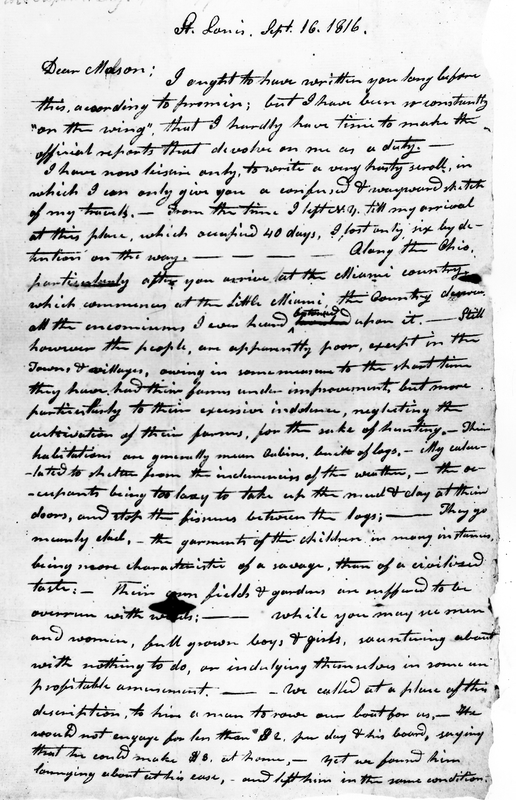 St. Louis. Sept. 16. 1816.
Dear Mason;
I ought to have written you long before
this, according to promise; but I have been so constantly
"on the wing", that I hardly have time to make the
official reports that devolve on me as a duty. —
I have now leisure only, to write a very hasty scroll, in
which I can only give you a confused & wayward sketch
of my travels. — From the time I left N.Y. till my arrival
at this place, which occupied 40 days, I lost only six by de-
tention on the way. — — — — Along the Ohio,
particularly after you arrive at the Miami country,
which commences at the Little Miami, the Country deserves
all the encomiums I ever heard bestowed upon it. — Still
however the people, are apparently poor, except in the
Towns & villages, owing in some measure to the short time
they have had their farms under improvement, but more
particularly to their excessive indolence, neglecting the
cultivation of their farms, for the sake of hunting. — Their
habitations are generally mean Cabins, built of logs, — illy calcu-
-lated to shelter from the inclemencies of the weather, — the oc-
-cupants being too lazy to take up the mud & clay at their
doors, and stop the fissures between the logs; — They go
meanly clad, — the garments of the children in many instances,
being more characteristic of a savage, than of a civilized
taste: — Their corn fields & gardens are suffered to be
overrun with weeds; — — while you may see men
and women, full grown boys & girls, sauntering about
with nothing to do, or indulging themselves in some un
profitable amusement. — — We called at a place of this
description, to hire a man to row our boat for us, — He
would not engage for less than $2. per day & his board, saying
that he could make $3. at home, — yet we found him
lounging about at his ease, — and left him in the same condition.